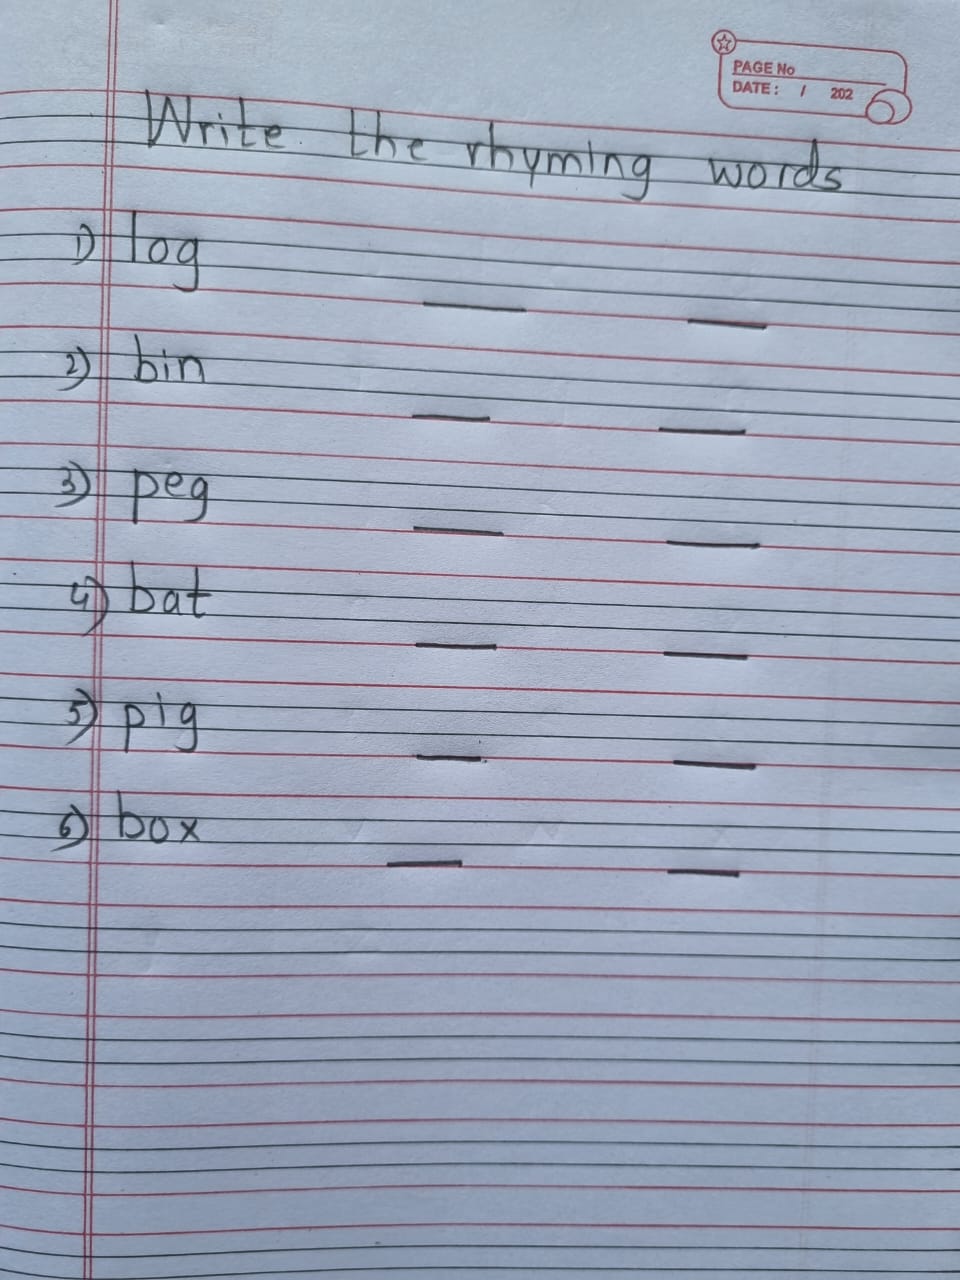 PAGE No
DATE: / 202
Write the rhyming words
1) log
2) bin
3) peg
4) bat
5) pig
6) box